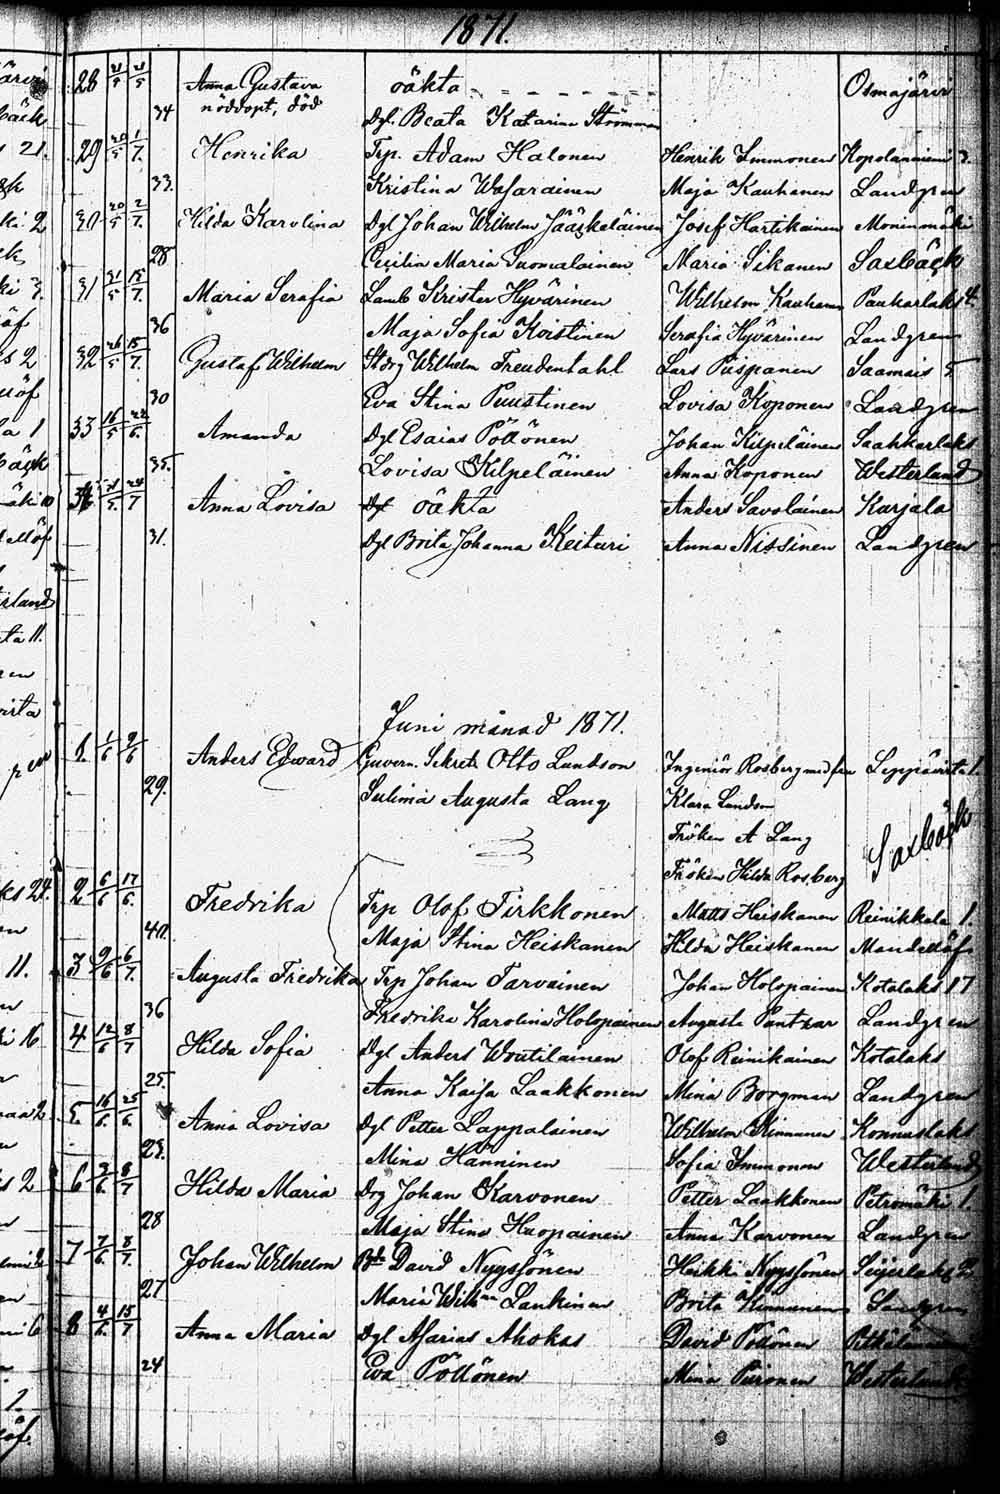 1871.
28 21/5 21/5 Anna Gustava oäkta Osmajärvi
nöddopt, död
34 Dgl. Beata Katarina Strömman
29 20/5 1/7. Henrika Trp. Adam Halonen Henrik Immonen Kopolanniemi 3.
33. Kristina Wasarainen Maja Kauhanen Landgren
30 20/5 2/7. Hilda Karolina Dgl Johan Wilhelm Jääskeläinen Josef Hartikainen Moninmäki
28 Cecilia Maria Suomalainen Maria Sikanen Saxbäck
31 31/5 15/7. Maria Serafia Lamb Krister Hyvärinen Wilhelm Kauhanen Paukarlaks 4.
36 Maja Sofia Koistinen Serafia Hyvärinen Landgren
32 26/5 15/7. Gustaf Wilhelm Stdrg Wilhelm Freudentahl Lars Piispanen Saamais 5
30 Eva Stina Puustinen Lovisa Koponen Landgren
33 16/5 22/6. Amanda Dgl Esaias Pöllönen Johan Kilpeläinen Saahkarlaks
35. Lovisa Kilpeläinen Anna Koponen Westerlund
34 21/5. 24/7 Anna Lovisa Dgl oäkta Anders Savolainen Karjala
31. Dgl Brita Johanna Keituri Anna Nissinen Landgren
Juni månad 1871.
1. 1/6 9/6 Anders Edward Guvern. Sekret. Otto Lundson Ingeniör Rosberg med fru Leppävirta 1.
29. Sulima Augusta Lang Klara Lundson
Fröken A Lang Saxbäck
Fröken Hilda Rosberg
2 6/6 17/6. Fredrika Trp Olof Tirkkonen Matts Heiskanen Reinikkala 1.
40. Maja Stina Heiskanen Hilda Heiskanen Mandellöf
3 9/6 6/7. Augusta Fredrika Trp Johan Tarvainen Johan Holopainen Kotalaks 17
36 Fredrika Karolina Holopainen Augusta Puntzar Landgren
4 12/6 8/7 Hilda Sofia Dgl Anders Woutilainen Olof Reinikainen Kotalaks
25. Anna Kaisa Laakkonen Mina Borgman Landgren
5. 16/6. 25/6. Anna Lovisa Dgl Petter Lappalainen Wilhelm Kinnunen Konnuslaks
23. Mina Hänninen Sofia Immonen Westerlund
6 2/6. 8/7 Hilda Maria Drg Johan Karvonen Petter Laakkonen Petromäki 1.
28 Maja Stina Huopainen Anna Karvonen Landgren
7 7/6. 8/7. Johan Wilhelm David Nyyssönen Heikki Nyyssönen Seijerlaks 2.
27 Maria Wilhna Lankinen Brita Kinnunen Landgren
8 4/6. 15/7 Anna Maria Dgl Asarias Ahokas David Pöllönen
24 Eva Pöllönen Mina Piironen Westerlund